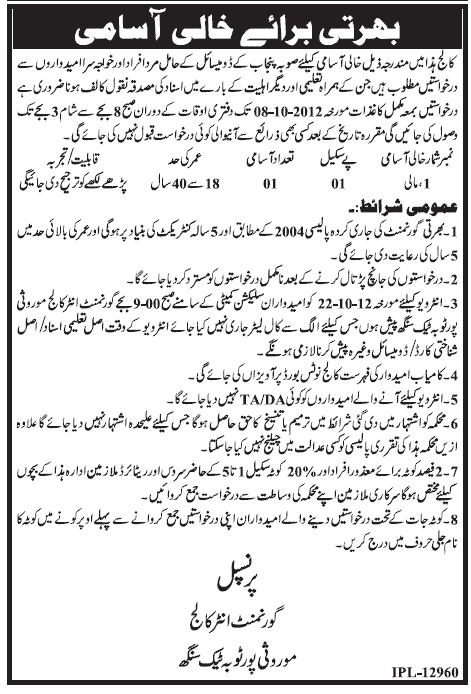 بھرتی برائے خالی آسامی
کالج ہذا میں مندرجہ ذیل خالی آسامی کیلئے صوبہ پنجاب کے ڈومیسائل کے حامل مرد افراد اور خواجہ سرا امیدواروں سے
درخواستیں مطلوب ہیں جن کے ہمراہ تعلیمی اور دیگر اہلیت کے بارے میں اسناد کی مصدقہ نقول کا لف ہونا ضروری ہے
درخواستیں بمعہ مکمل کاغذات مورخہ 08-10-2012 تک دفتری اوقات کے دوران صبح 8 بجے تا شام 3 بجے تک
وصول کی جائیں گی مقررہ تاریخ کے بعد کسی بھی ذرائع سے آنیوالی کوئی درخواست قبول نہیں کی جائے گی۔
نمبر شمار خالی آسامی پے سکیل تعداد آسامی عمر کی حد قابلیت/تجربہ
1، مالی 01 01 18 سے 40 سال پڑھے لکھے کو ترجیح دی جائیگی
عمومی شرائط:۔
1۔ بھرتی گورنمنٹ کی جاری کردہ پالیسی 2004 کے مطابق اور 5 سالہ کنٹریکٹ کی بنیاد پر ہوگی اور عمر کی بالائی حد میں
5 سال کی رعایت دی جائے گی۔
2۔ درخواستوں کی جانچ پڑتال کرنے کے بعد نامکمل درخواستوں کو مسترد کر دیا جائے گا۔
3۔ انٹرویو کیلئے مورخہ 22-10-12 کو امیدواران سلیکشن کمیٹی کے سامنے صبح 9-00 بجے گورنمنٹ انٹر کالج موروثی
پور ٹوبہ ٹیک سنگھ پیش ہوں جس کیلئے الگ سے کال لیٹر جاری نہیں کیا جائے انٹرویو کے وقت اصل تعلیمی اسناد/ اصل
شناختی کارڈ/ ڈومیسائل وغیرہ پیش کرنا لازمی ہونگے۔
4۔ کامیاب امیدوار کی فہرست کالج نوٹس بورڈ پر آویزاں کی جائے گی۔
5۔ انٹرویو کیلئے آنے والے امیدواروں کو کوئی TA/DA نہیں دیا جائے گا۔
6۔ محکمہ کو اشتہار میں دی گئی شرائط میں ترمیم یا تنسیخ کا حق حاصل ہوگا جس کیلئے علیحدہ اشتہار نہیں دیا جائے گا علاوہ
ازیں محکمہ ہذا کی تقرری پالیسی کو کسی عدالت میں چیلنج نہیں کیا جاسکتا۔
7۔ 2 فیصد کوٹہ برائے معذور افراد اور 20% کوٹہ سکیل 1 تا 5 کے حاضر سروس اور ریٹائرڈ ملازمین ادارہ ہذا کے بچوں
کیلئے مختص ہوگا سرکاری ملازمین اپنے محکمہ کی وساطت سے درخواست جمع کروائیں۔
8۔ کوٹہ جات کے تحت درخواستیں دینے والے امیدواران اپنی درخواستیں جمع کروانے سے پہلے اوپر کونے میں کوٹہ کا
نام جلی حروف میں درج کریں۔
پرنسپل
گورنمنٹ انٹر کالج
موروثی پور ٹوبہ ٹیک سنگھ
IPL-12960